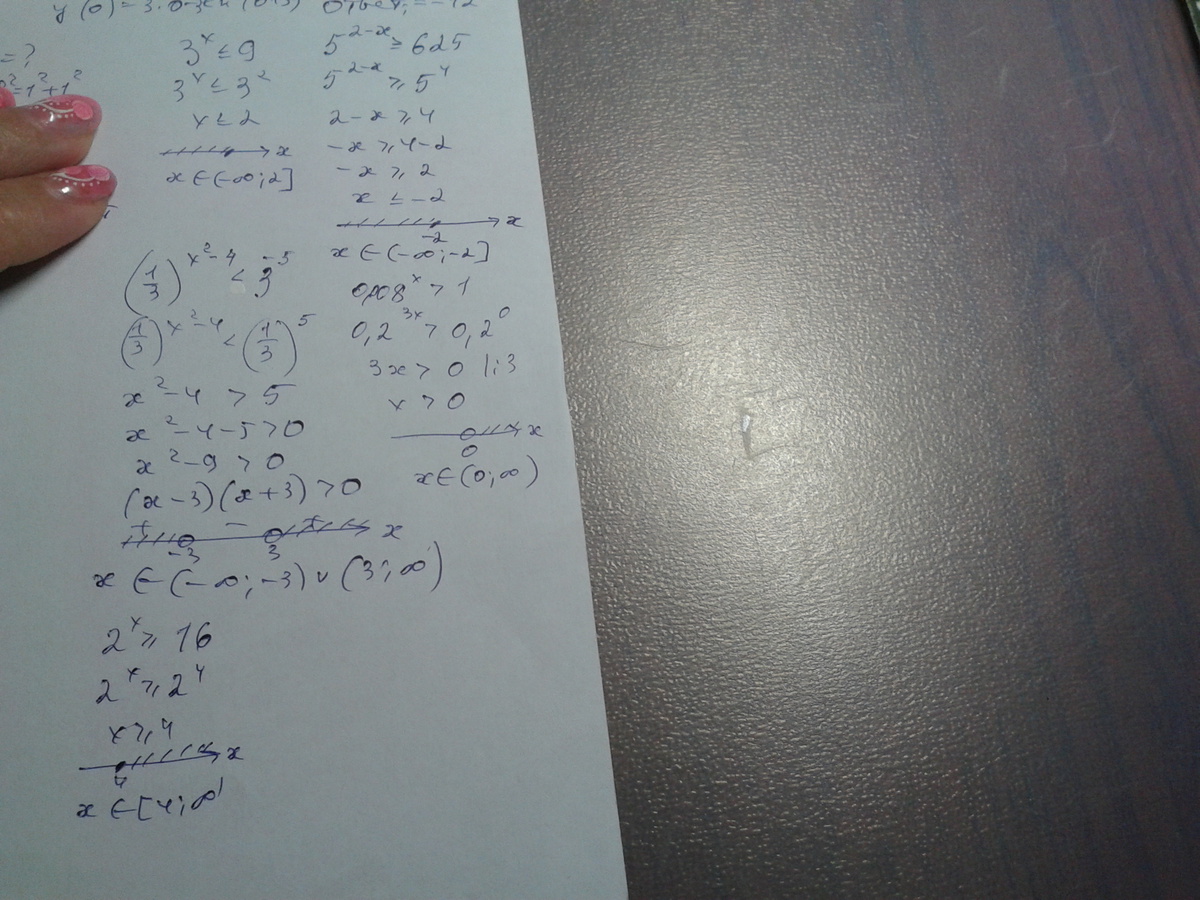 y(0)=3·0-3
Ответ: =-12
=?
²=1²+1²
3ˣ ≤ 9
3ˣ ≤ 3²
x ≤ 2
x
x ∈ (-∞; 2]
5²⁻ˣ ≥ 625
5²⁻ˣ ≥ 5⁴
2-x ≥ 4
-x ≥ 4-2
-x ≥ 2
x ≤ -2
x
-2
x ∈ (-∞; -2]
(1/3)^(x²-4) < 3⁻⁵
(1/3)^(x²-4) < (1/3)⁵
x²-4 > 5
x²-4-5 > 0
x²-9 > 0
(x-3)(x+3) > 0
+ - + x
-3 3
x ∈ (-∞; -3) ∪ (3; ∞)
0,008ˣ > 1
0,2³ˣ > 0,2⁰
3x > 0 |:3
x > 0
x
0
x ∈ (0; ∞)
2ˣ ≥ 16
2ˣ ≥ 2⁴
x ≥ 4
x
4
x ∈ [4; ∞)